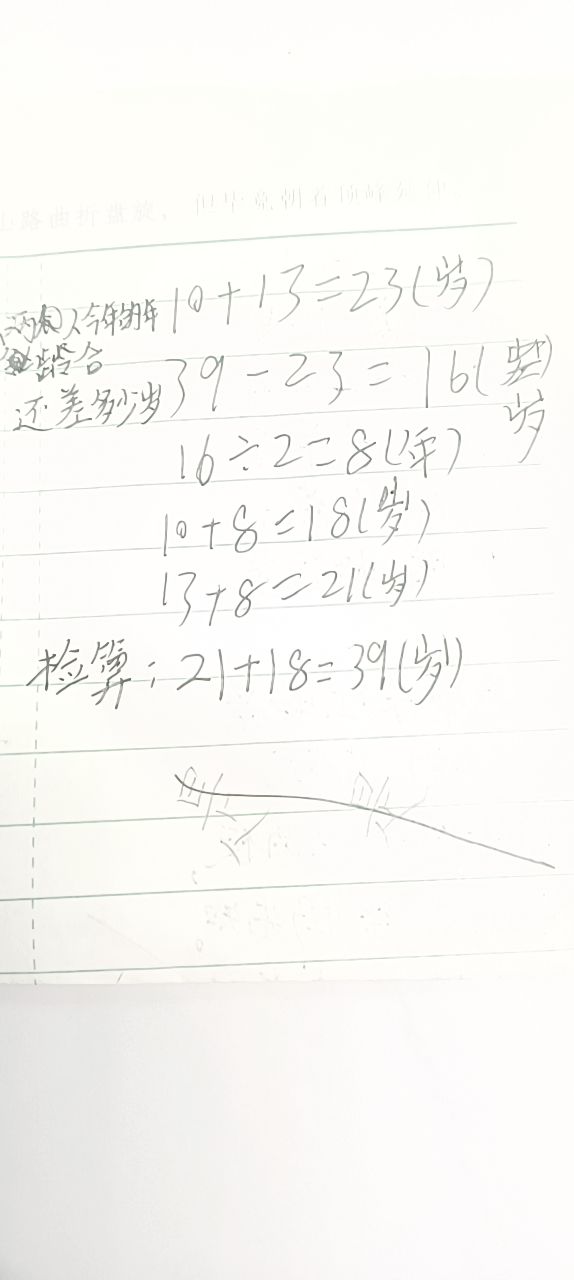 山路曲折盘旋，但毕竟朝着顶峰延伸
两人今年的年 10+13=23(岁)
龄合
还差多少岁 39-23=16(岁)
岁
16÷2=8(年)
10+8=18(岁)
13+8=21(岁)
检算：21+18=39(岁)